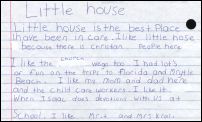 Little house
Little house is the best Place
I have been in care. I like little hose
because there is christan People here
I like the church wego too I had lots
or fun on the trips to Florida and Myrtle
Beach. I like my mom and dad here
and the child care workers. I like it
When Isaac does devotions with us at
School. I like Mr.k and Mrs kral.